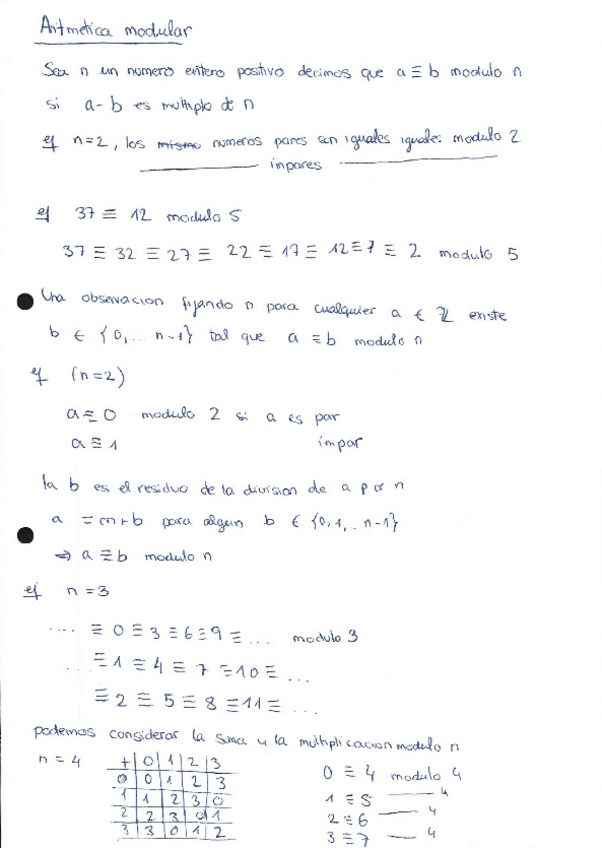 Aritmetica modular
Sea n un numero entero postivo decimos que a ≡ b modulo n
si a - b es multiplo de n
ej n=2, los mismo numeros pares son iguales iguales modulo 2
impares
ej 37 ≡ 12 modulo 5
37 ≡ 32 ≡ 27 ≡ 22 ≡ 17 ≡ 12 ≡ 7 ≡ 2 modulo 5
Una observacion fijando n para cualquier a ∈ ℤ existe
b ∈ {0,... n-1} tal que a ≡ b modulo n
ej (n=2)
a ≡ 0 modulo 2 si a es par
a ≡ 1 impar
la b es el residuo de la division de a por n
a = cn+b para algun b ∈ {0,1,.. n-1}
⇒ a ≡ b modulo n
ej n=3
.... ≡ 0 ≡ 3 ≡ 6 ≡ 9 ≡ ... modulo 3
... ≡ 1 ≡ 4 ≡ 7 ≡ 10 ≡ ...
≡ 2 ≡ 5 ≡ 8 ≡ 11 ≡ ....
podemos considerar la suma y la multiplicacion modulo n
n = 4
+ 0 1 2 3
0 0 1 2 3
1 1 2 3 0
2 2 3 0 1
3 3 0 1 2
0 ≡ 4 modulo 4
1 ≡ 5 —— 4
2 ≡ 6 —— 4
3 ≡ 7 —— 4